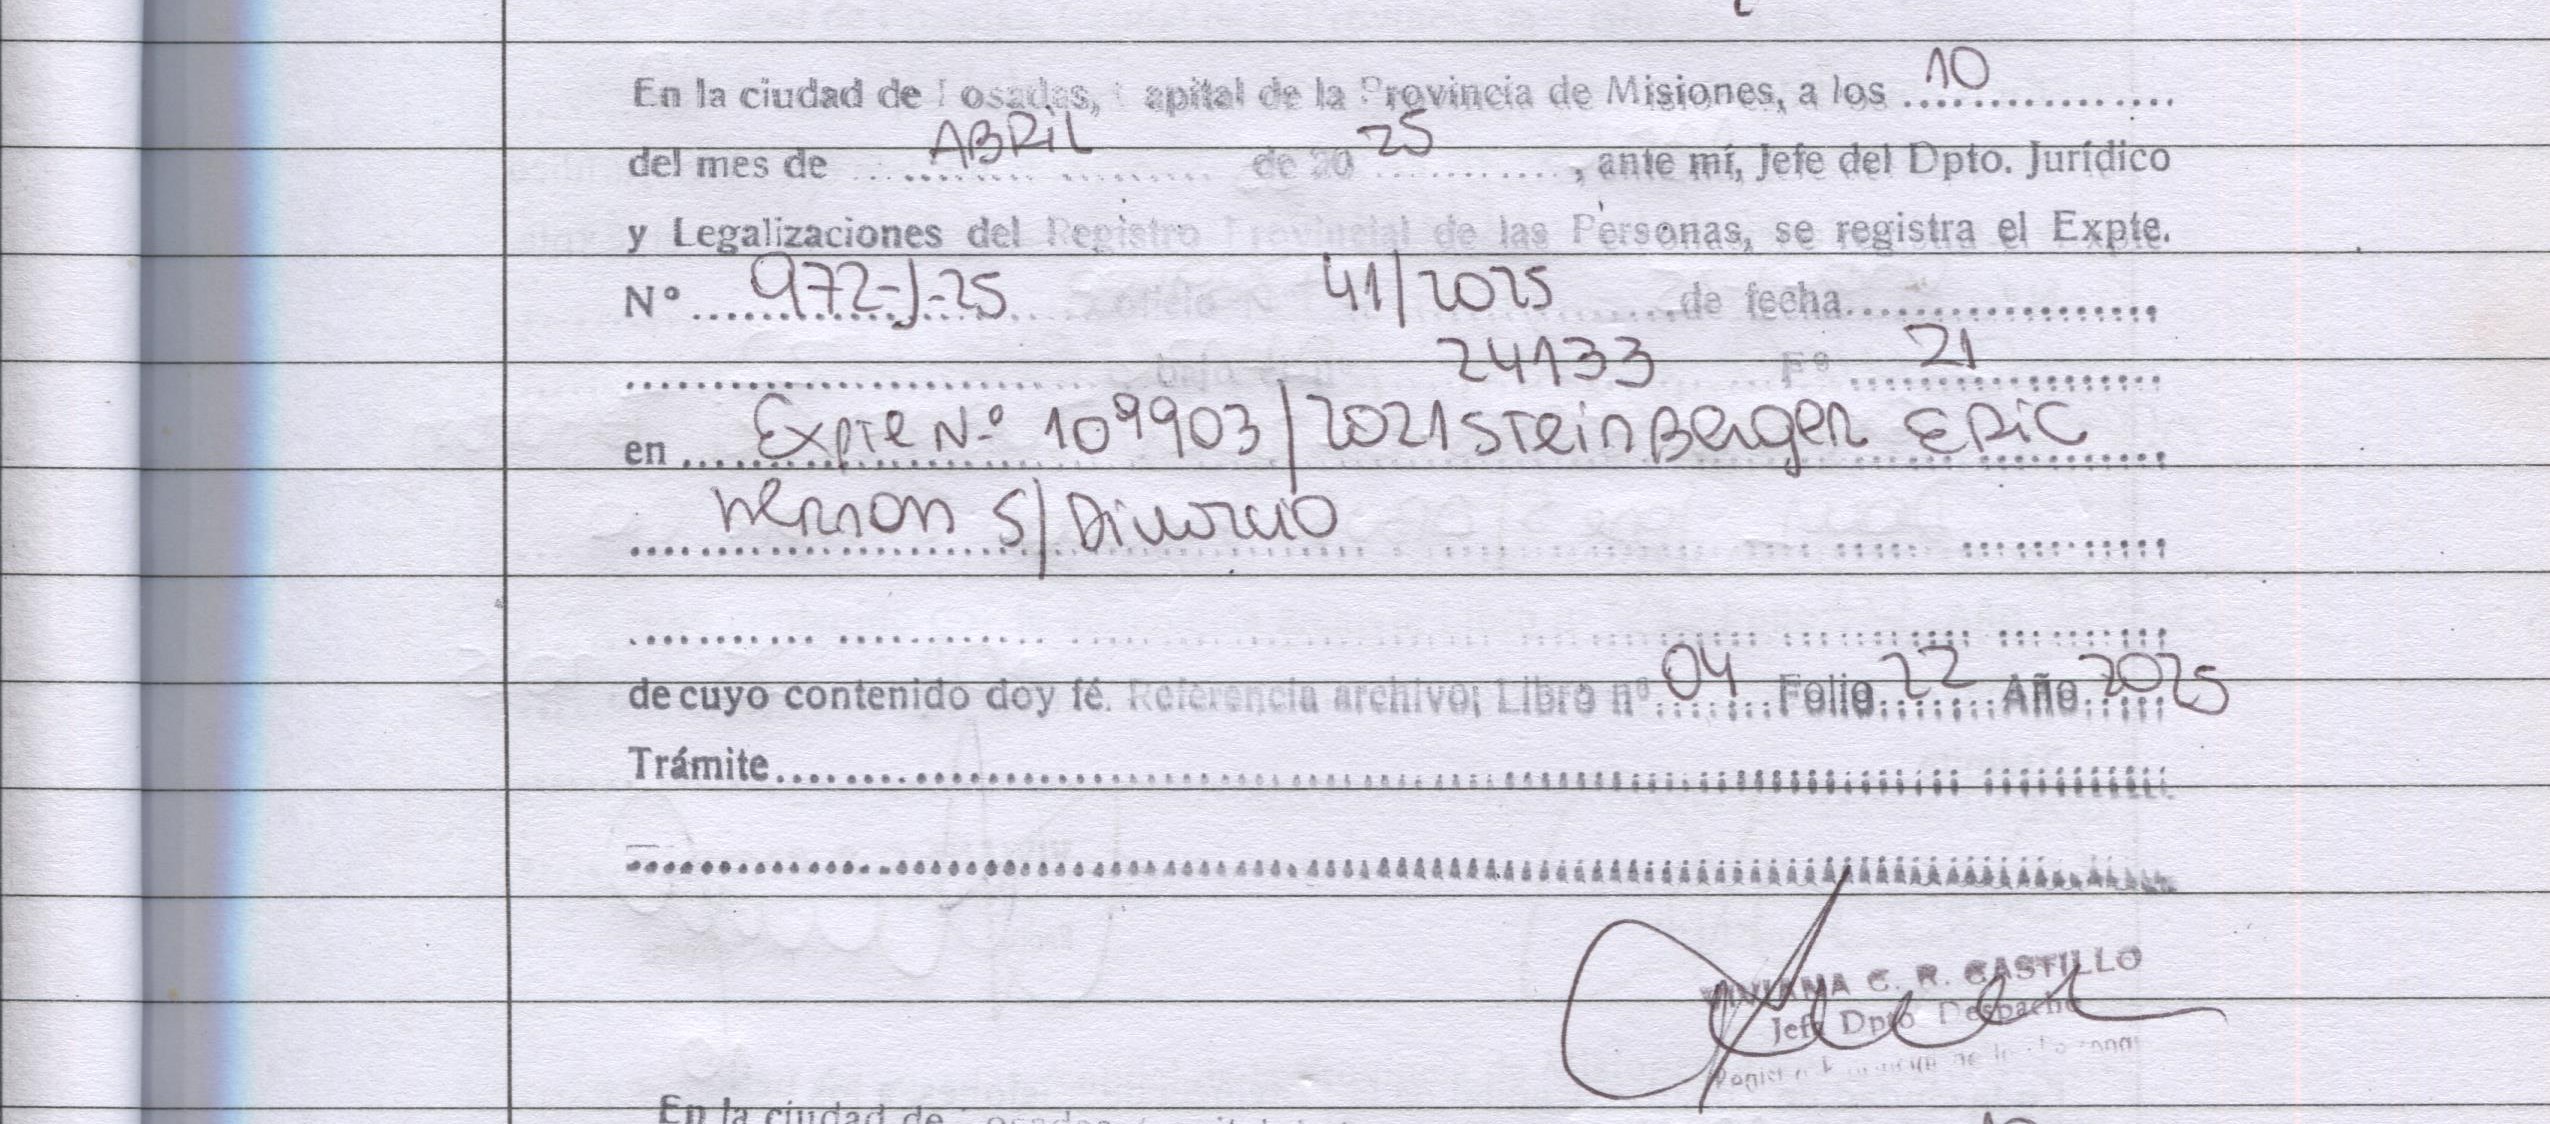 En la ciudad de Posadas, Capital de la Provincia de Misiones, a los 10
del mes de ABRIL de 20 25, ante mí, Jefe del Dpto. Jurídico
y Legalizaciones del Registro Provincial de las Personas, se registra el Expte.
N° 972-J-25 oficio N° 41/2025 de fecha
24133 F° 21
en Expte N° 109903/2021 STeinBerger ERiC
nerson S/ Divorcio
de cuyo contenido doy fé. Referencia archivo: Libro n° 04 Folio 22 Año 2025
Trámite
VIVIANA C. R. CASTILLO
Jefe Dpto Despacho
En la ciudad de